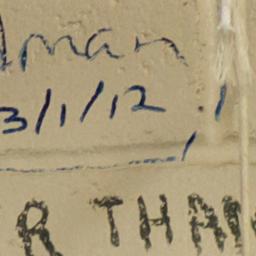 Aman
3/1/12
R THAN